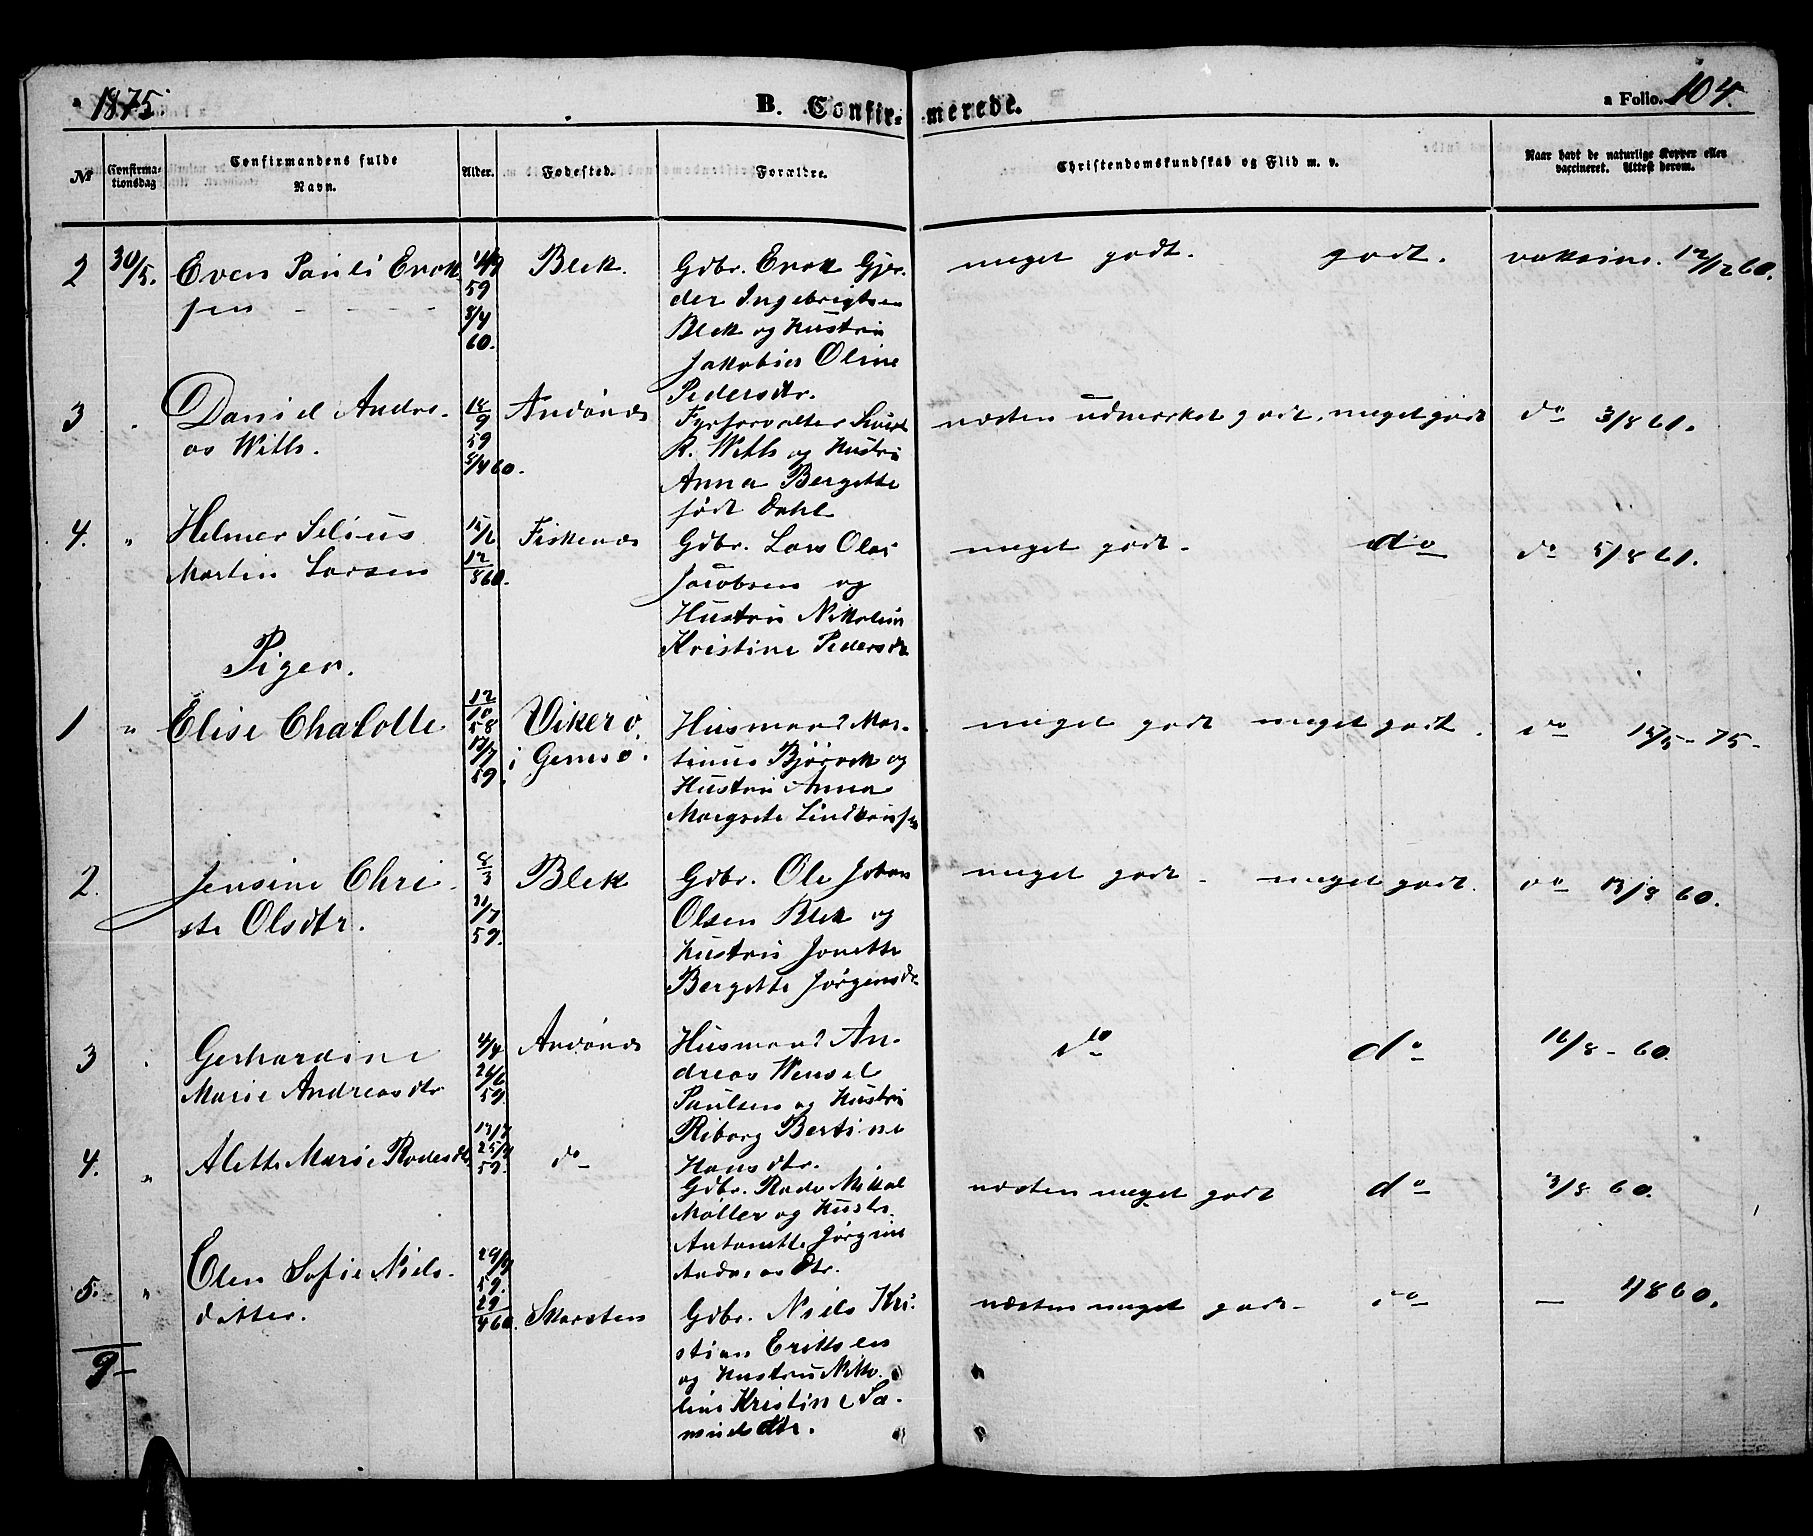 1875.
B. Confir-
merede.
a Folio. 104.
№
Confirma-
tionsdag
Confirmandens fulde
Navn.
Alder.
Fødested.
Forældre.
Christendomskundskab og Flid m. v.
Naar havt de naturlige Kopper eller
vaccineret. Attest derom.
2 30/5. Even Pauli Enok
sen
59
3/4
60.
Blek.
Gdbr. Enok Gjer-
der Ingebrigtsen
Blek og Hustru
Jakobine Oline
Pedersdtr.
meget godt. godt. vaksine. 12/12 60.
3 Daniel Andre-
as With.
18/9
59
8/4 60.
Andønes
Fyrforvalter
R. With og Hustru
Anna Bergitte
født Dahl
næsten udmærket godt. meget godt do 3/8 61.
4. " Helmer Selius
Martin Larsen
12/8 60.
Fiskenes
Gdbr. Lars Olai
Jacobsen og
Hustru Nikoline
Kristine Pedersdtr
meget godt do do 5/8 61.
Piger.
1 " Elise Chalotte
12/10
58
12/7
59.
Vikerø
i Gemsø.
Husmand Mar-
tinus Bjørvek og
Hustru Anna
Margrete
meget godt meget godt. do 75
2. Jensine Chri-
ste Olsdtr.
8/3
21/7
59.
Blek
Gdbr. Ole Johan
Olsen Blek og
Hustru Jonette
Bergitte Jørgensdtr
meget godt meget godt. do 13/8 60.
3 Gerhardine
Marie Andreasdtr
4/4
26/6
59.
Andønes
Husmand An-
dreas Wensel
Paulsen og Hustru
Riborg Bertine
Hansdtr.
do do 16/8 60.
4. " Alette Marie Rodesdtr
25/7
59.
do
Gdbr. Rode Mikal
Møller og Hustr.
Antonette Jørgine
Andreasdtr.
næsten meget godt do 3/8 60.
5. " Elen Sofie Niels-
datter.
59.
29/4 60.
Skarsten
Gdbr. Niels Kri-
stian Eriksen
og Hustru Niko-
line Kristine Sa-
muelsdtr.
næsten meget godt do — 860.
9